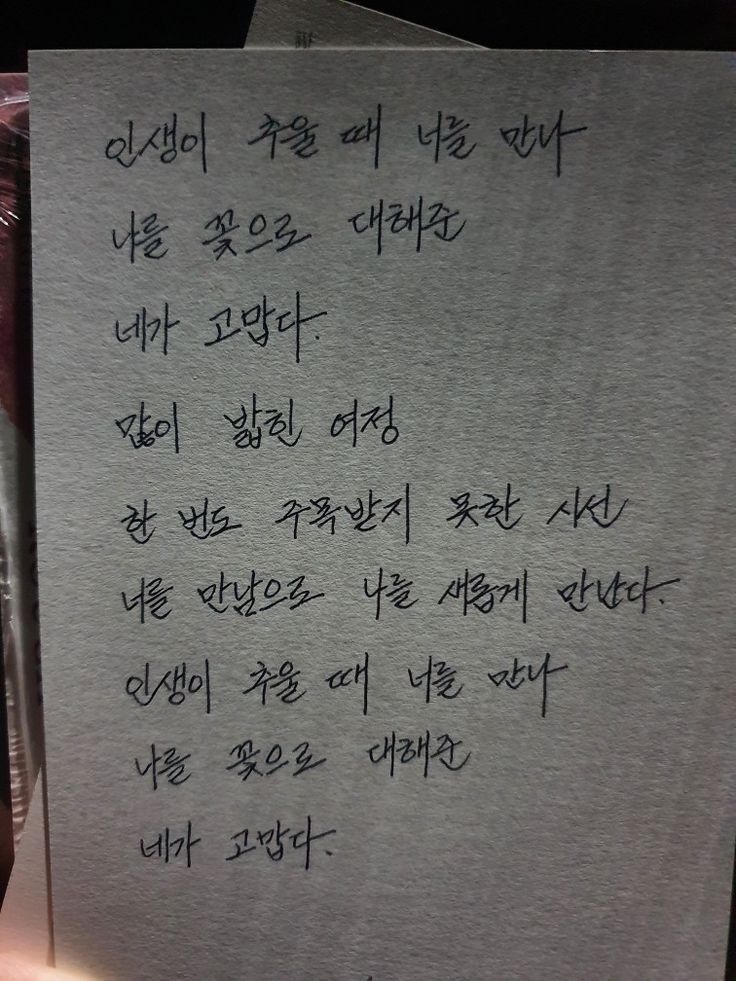 인생이 추울 때 너를 만나
나를 꽃으로 대해준
네가 고맙다.
많이 밟힌 여정
한 번도 주목받지 못한 시선
너를 만남으로 나를 새롭게 만난다.
인생이 추울 때 너를 만나
나를 꽃으로 대해준
네가 고맙다.